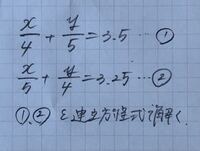 x/4 + y/5 = 3.5 … ①
x/5 + y/4 = 3.25 … ②
①,② を連立方程式で解く.